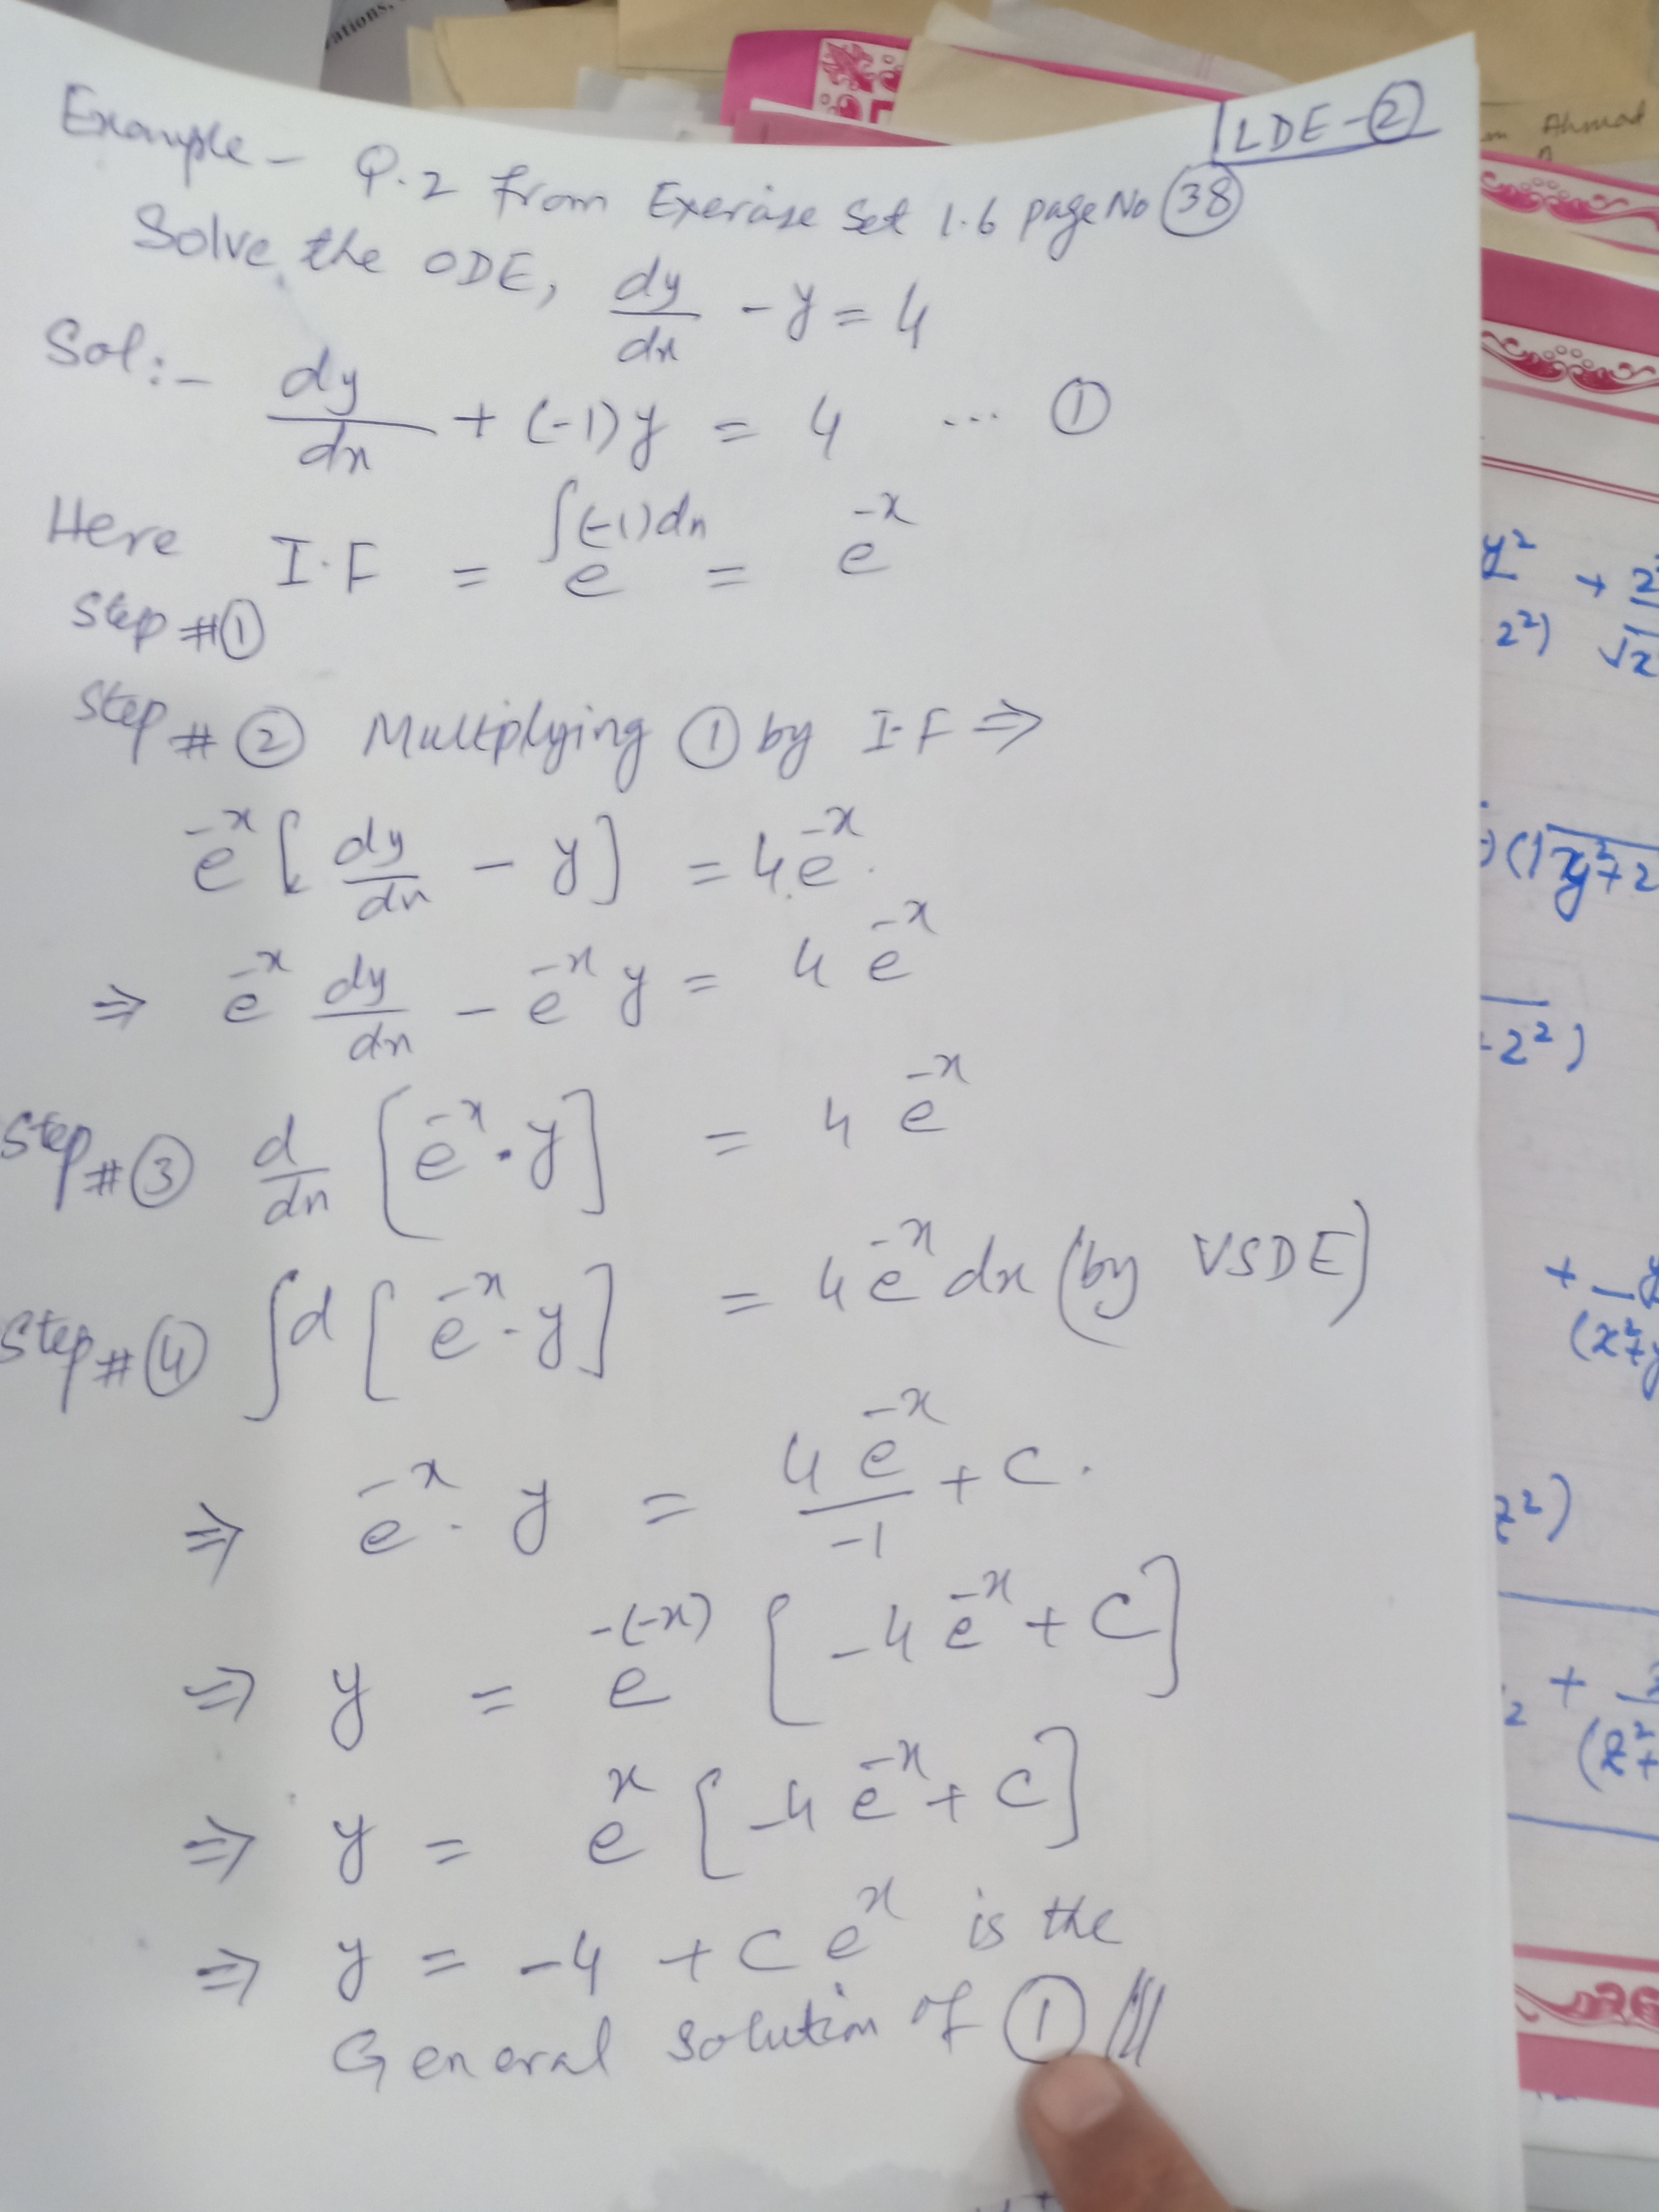 ations,
LDE-②
m Ahmat
Example - Q.2 from Exercise Set 1.6 page No ㊳
Solve the ODE, dy/dx - y = 4
Sol:- dy/dx + (-1)y = 4 ... ①
Here I.F = e^∫(-1)dx = e^-x
Step #①
Step # ② Multiplying ① by I.F ⇒
e^-x [dy/dx - y] = 4e^-x.
⇒ e^-x dy/dx - e^-x y = 4 e^-x
Step # ③ d/dx [e^-x . y] = 4 e^-x
Step # ④ ∫d [e^-x . y] = 4e^-x dx (by VSDE)
⇒ e^-x . y = 4e^-x/-1 + C.
⇒ y = e^-(-x) [-4e^-x + C]
⇒ y = e^x [-4e^-x + C]
⇒ y = -4 + C e^x is the
General solution of ①
y² + 2
2²) √x
(1 y²+2
-2²)
+ y
(x²+y
z²)
2 +
(z²+